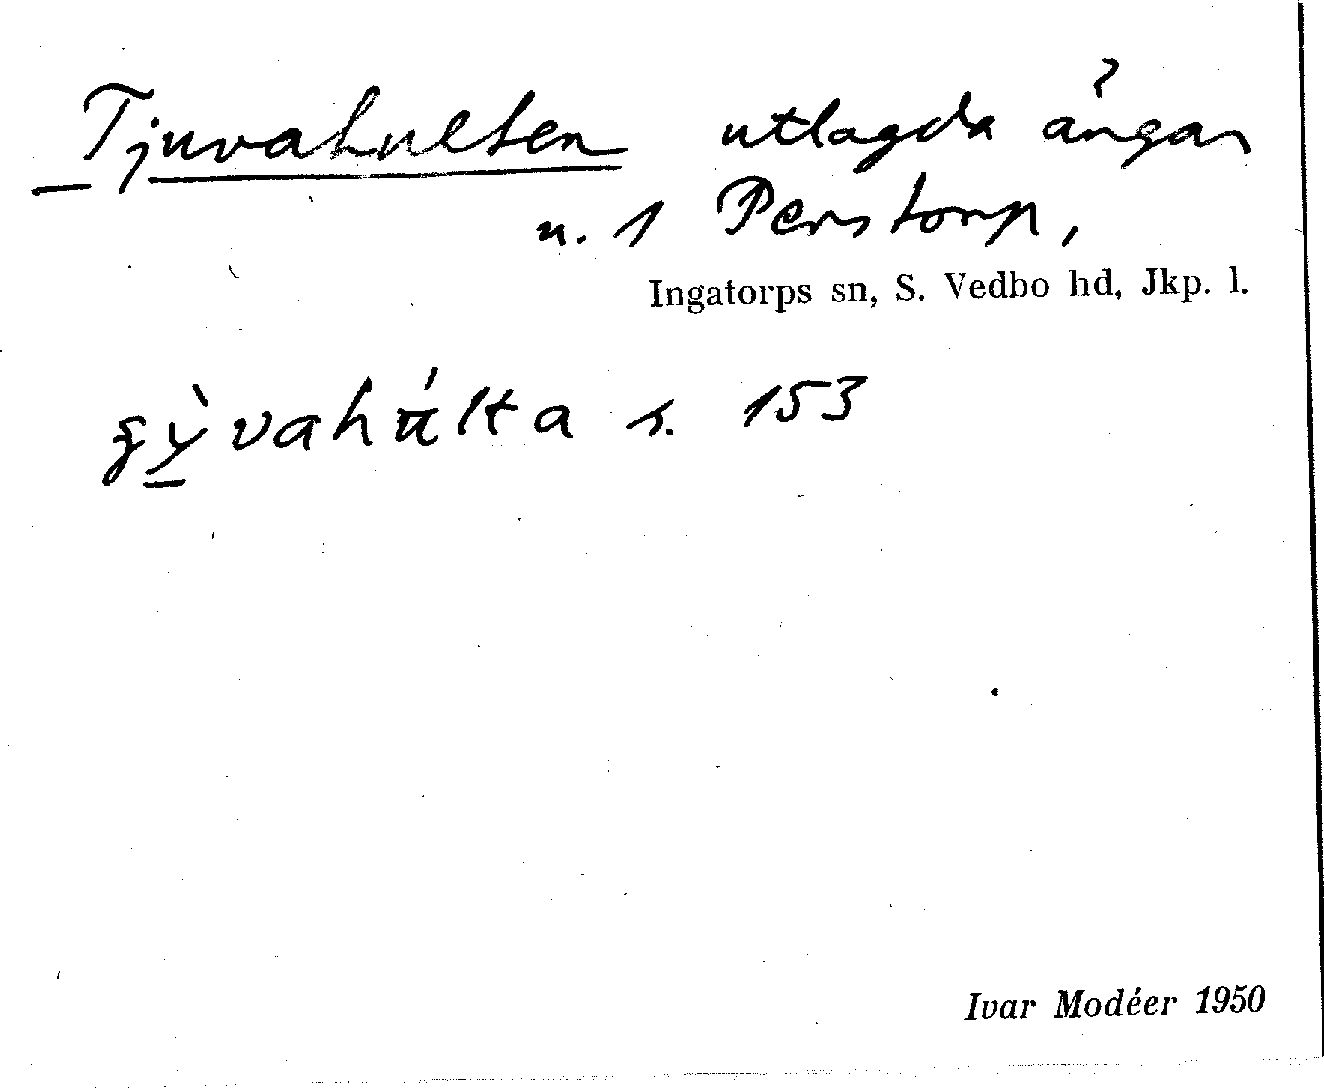 Tjuvahulten utlagda ängar
u. 1 Perstorp,
Ingatorps sn, S. Vedbo hd, Jkp. l.
s. 153
Ivar Modéer 1950